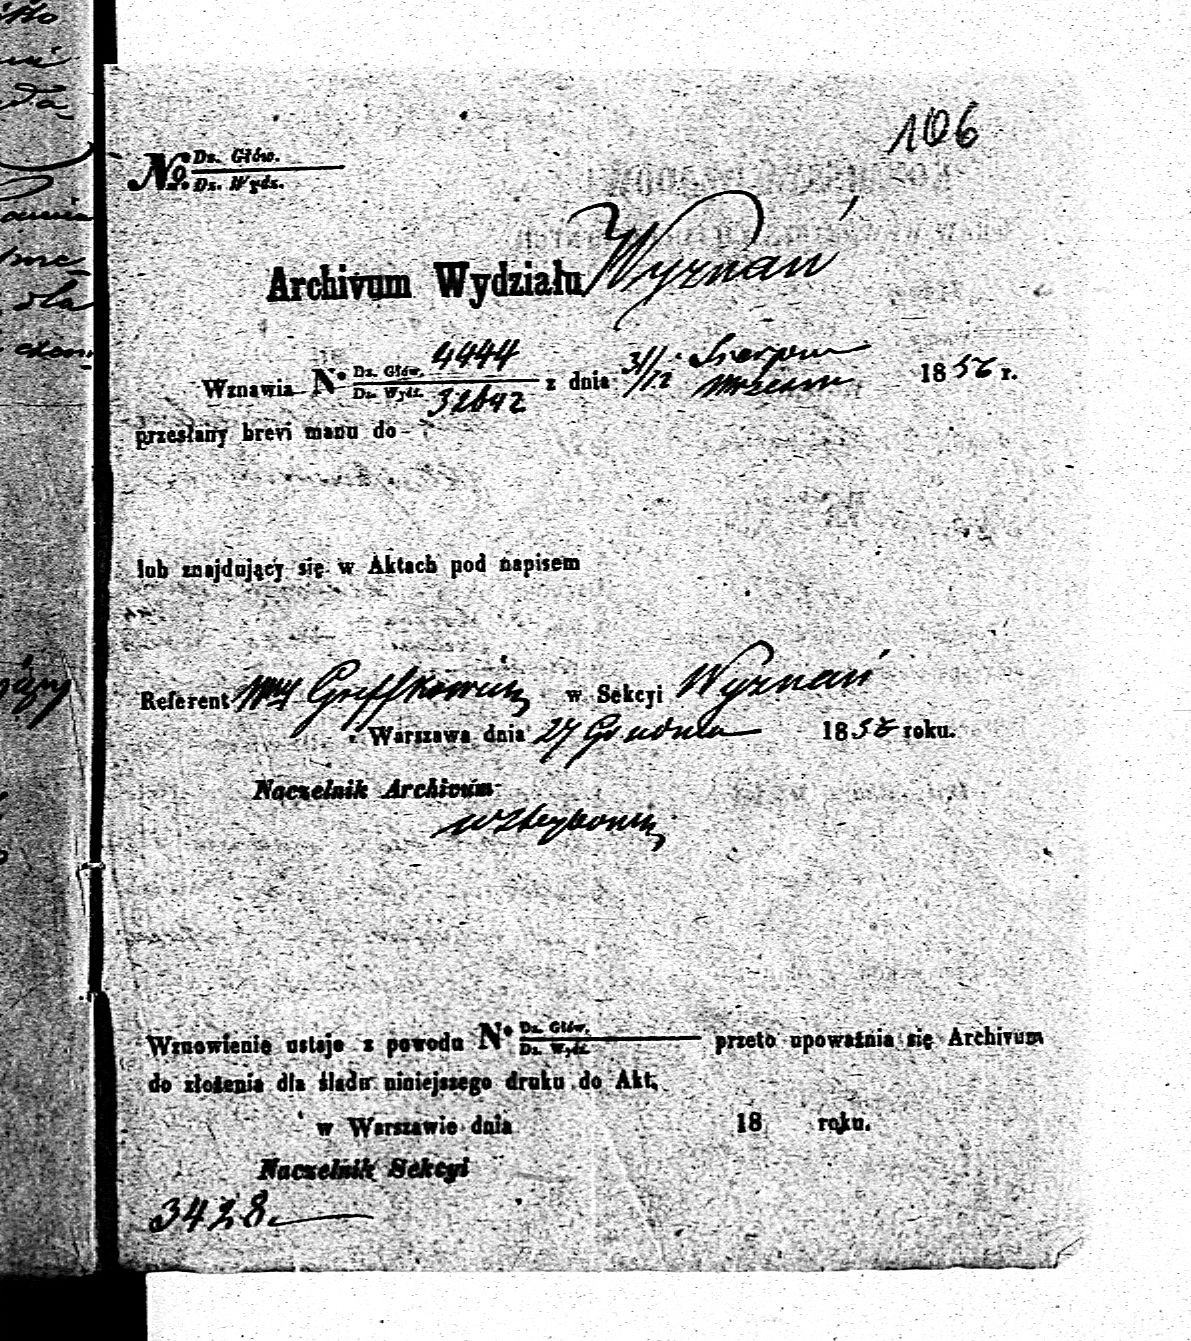 106
No. Dz. Głów.
Dz. Wydz.
Archivum Wydziału Wyznań
Wznawia No. Dz. Głów. 4444 z dnia 31/12 Sierpnia 1856 r.
Dz. Wydz. 32642 Września
przesłany brevi manu do
lub znajdujący się w Aktach pod napisem
Referent w Sekcyi Wyznań
Warszawa dnia 27 Grudnia 1856 roku.
Naczelnik Archivum
Wznowienie ustaje z powodu No. Dz. Głów. przeto upoważnia się Archivum
Dz. Wydz.
do złożenia dla śladu niniejszego druku do Akt.
w Warszawie dnia 18 roku.
Naczelnik Sekcyi
3428